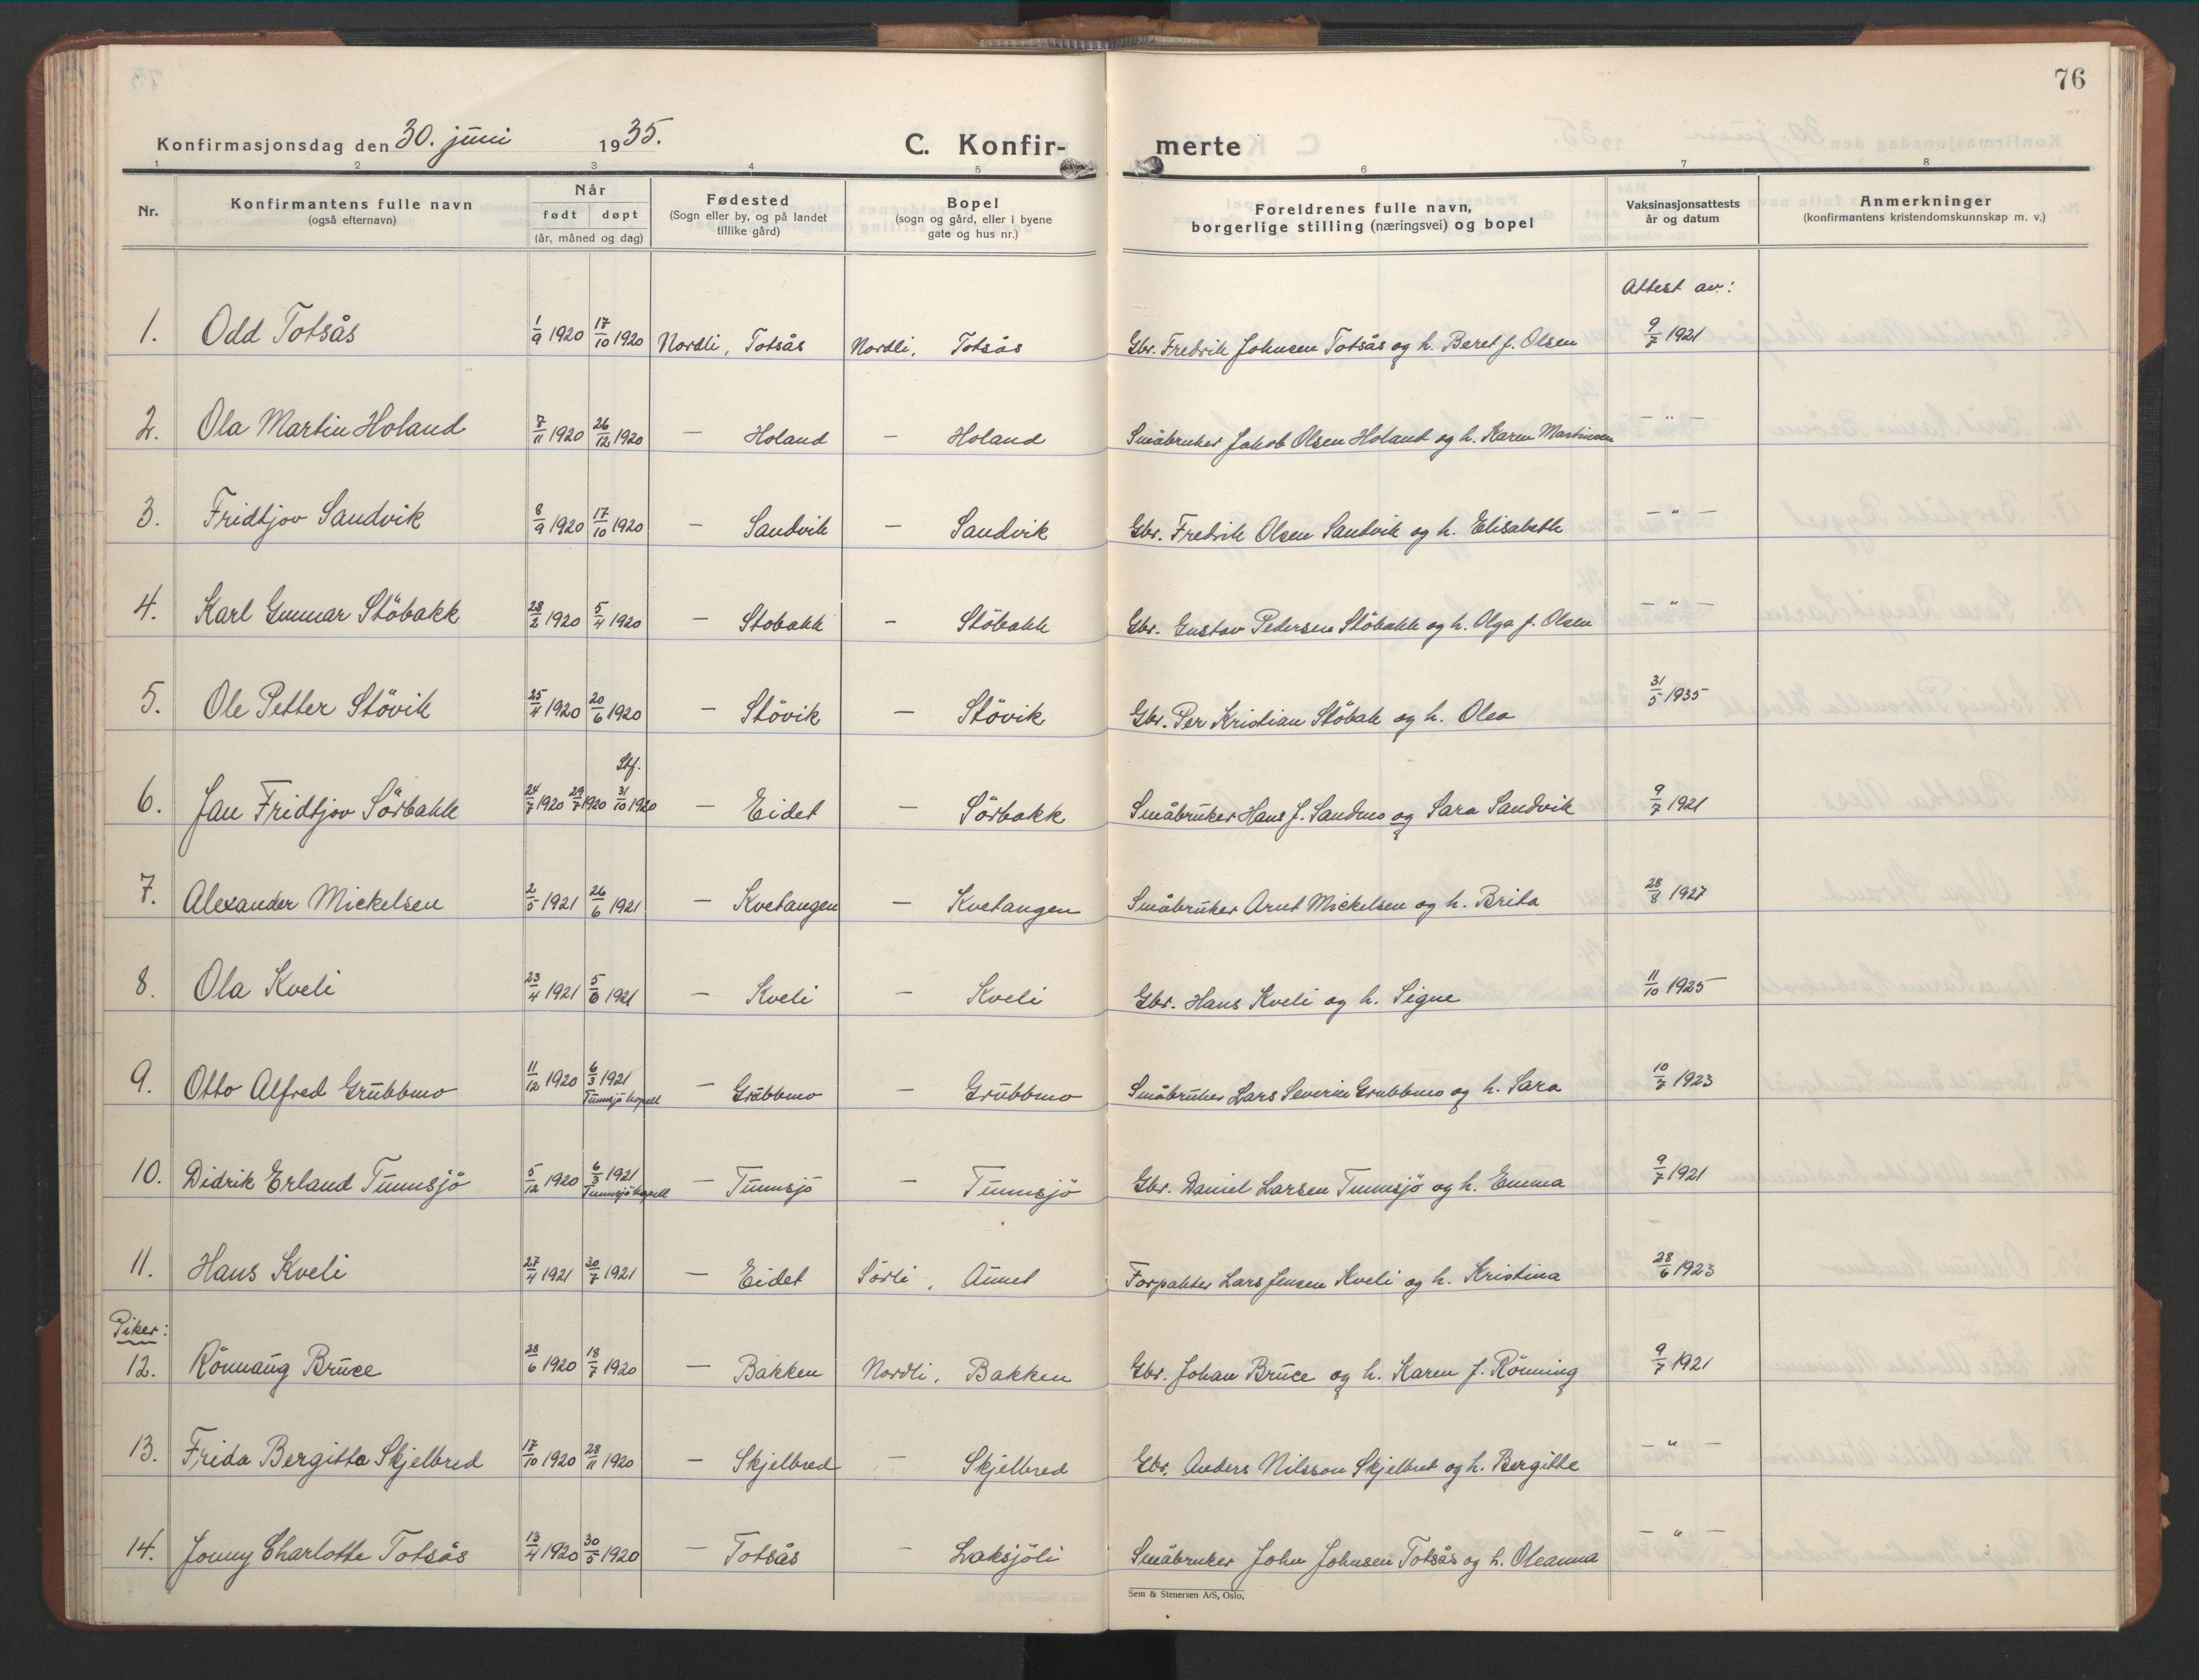 76
Konfirmasjonsdag den 30. juni 1935. C. Konfir- merte
1 2 3 4 5 6 7 8
Nr. Konfirmantens fulle navn (også efternavn) Når født døpt (år, måned og dag) Fødested (Sogn eller by, og på landet tillike gård) Bopel (sogn og gård, eller i byene gate og hus nr.) Foreldrenes fulle navn, borgerlige stilling (næringsvei) og bopel Vaksinasjonsattests år og datum Anmerkninger (konfirmantens kristendomskunnskap m. v.)
Attest av:
1. Odd Totsås 1/9 1920 17/10 1920 Nordli, Totsås Nordli, Totsås Gbr. Fredrik Johnsen Totsås og h. Beret f. Olsen 9/7 1921
2. Ola Martin Holand 7/11 1920 26/12 1920 — Holand — Holand Småbruker Jakob Olsen Holand og h. Karen Martinsen — " —
3. Fridtjov Sandvik 8/9 1920 17/10 1920 — Sandvik — Sandvik Gbr. Fredrik Olsen Sandvik og h. Elisabeth — " —
4. Karl Gunnar Stöbakk 28/2 1920 5/4 1920 — Stobakk — Stöbakk Gbr. Gustav Pedersen Stöbakk og h. Olga f. Olsen — " —
5. Ole Petter Stövik 25/4 1920 20/6 1920 — Stövik — Stövik Gbr. Per Kristian Stöbak og h. Olea 31/5 1935
6. Jan Fridtjov Sörbakk 24/7 1920 29/7 1920 Stf. 31/10 1920 — Eidet — Sörbakk Småbruker Hans J. Sandmo og Sara Sandvik 9/7 1921
7. Alexander Mickelsen 2/5 1921 26/6 1921 — Kvetangen — Kvetangen Småbruker Arnt Mickelsen og h. Brita 28/8 1927
8. Ola Kveli 23/4 1921 5/6 1921 — Kveli — Kveli Gbr. Hans Kveli og h. Signe 11/10 1925
9. Otto Alfred Grubbmo 11/12 1920 6/3 1921 Tunnsjö kapell — Grubbmo — Grubbmo Småbruker Lars Severin Grubbmo og h. Sara 10/7 1923
10. Didrik Erland Tunnsjö 5/12 1920 6/3 1921 Tunnsjö kapell — Tunnsjö — Tunnsjö Gbr. Daniel Larsen Tunnsjö og h. Emma 9/7 1921
11. Hans Kveli 27/4 1921 30/7 1921 — Eidet Sörli, Aunet Forpakter Lars Jensen Kveli og h. Kristina 28/6 1923
Piker:
12. Rönnaug Bruce 28/6 1920 18/7 1920 — Bakken Nordli, Bakken Gbr. Johan Bruce og h. Karen f. Rönning 9/7 1921
13. Frida Bergitta Skjelbred 17/10 1920 28/11 1920 — Skjelbred — Skjelbred Gbr. Anders Nilsson Skjelbret og h. Bergitte — " —
14. Jonny Charlotte Totsås 13/4 1920 30/5 1920 — Totsås — Laksjöli Småbruker John Johnsen Totsås og h. Oleanna — " —
Sem & Stenersen A/S, Oslo,